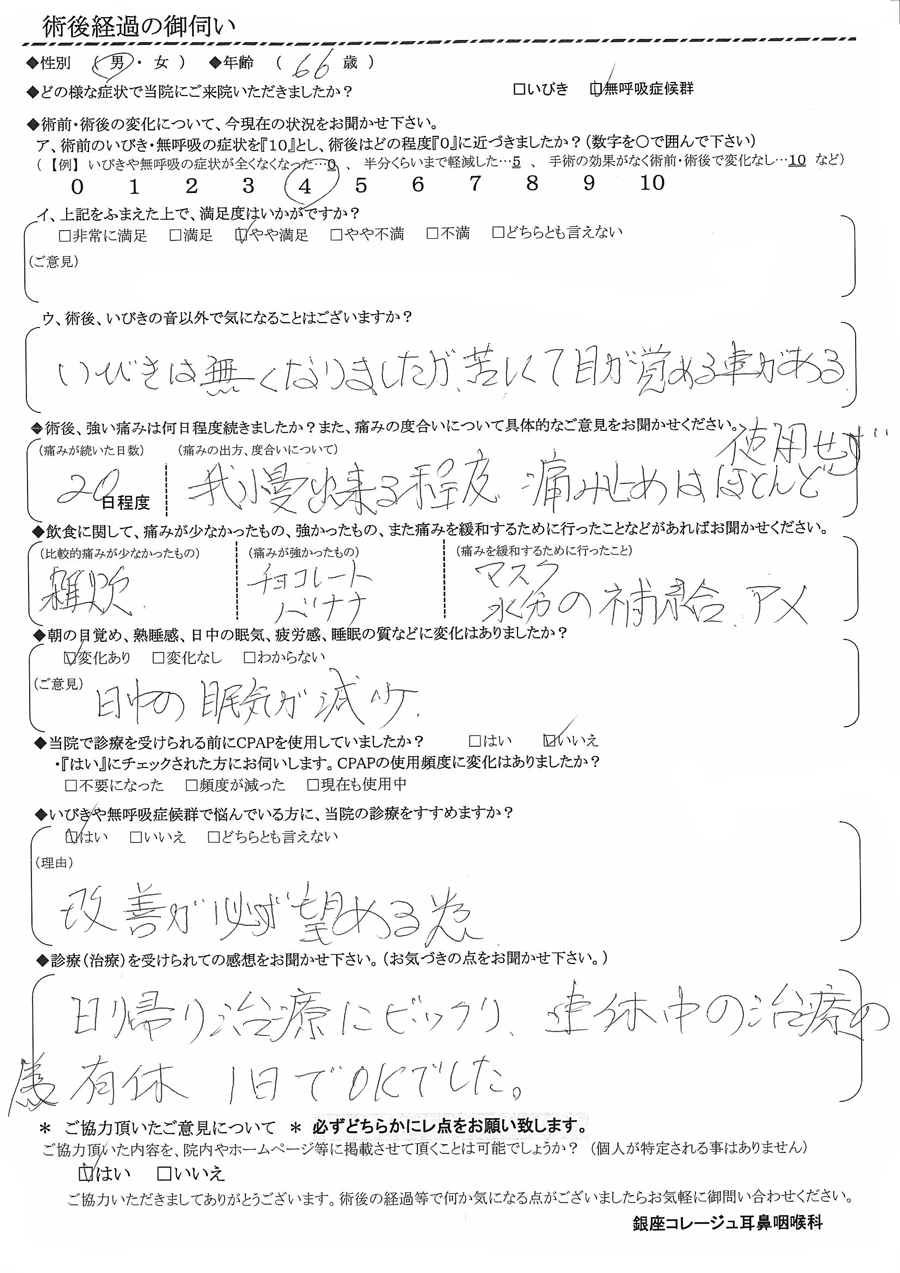 術後経過の御伺い
◆性別 （ 男 ・ 女 ） ◆年齢 （ 66 歳 ）
◆どの様な症状で当院にご来院いただきましたか？ □いびき ☑無呼吸症候群
◆術前・術後の変化について、今現在の状況をお聞かせ下さい。
ア、術前のいびき・無呼吸の症状を『10』とし、術後はどの程度『0』に近づきましたか？（数字を○で囲んで下さい）
（ 【例】 いびきや無呼吸の症状が全くなくなった…0 、 半分くらいまで軽減した…5 、 手術の効果がなく術前・術後で変化なし…10 など）
0 1 2 3 4 5 6 7 8 9 10
イ、上記をふまえた上で、満足度はいかがですか？
□非常に満足 □満足 ☑やや満足 □やや不満 □不満 □どちらとも言えない
（ご意見）
ウ、術後、いびきの音以外で気になることはございますか？
いびきは無くなりましたが、苦しくて目が覚める事がある
◆術後、強い痛みは何日程度続きましたか？また、痛みの度合いについて具体的なご意見をお聞かせください。
（痛みが続いた日数） （痛みの出方、度合いについて）
20日程度 我慢出来る程度 痛み止めはほとんど
使用せず
◆飲食に関して、痛みが少なかったもの、強かったもの、また痛みを緩和するために行ったことなどがあればお聞かせください。
（比較的痛みが少なかったもの） （痛みが強かったもの） （痛みを緩和するために行ったこと）
雑炊 チョコレート マスク
バナナ 水分の補給 アメ
◆朝の目覚め、熟睡感、日中の眠気、疲労感、睡眠の質などに変化はありましたか？
☑変化あり □変化なし □わからない
（ご意見）
日中の眠気が減少
◆当院で診療を受けられる前にCPAPを使用していましたか？ □はい ☑いいえ
・『はい』にチェックされた方にお伺いします。CPAPの使用頻度に変化はありましたか？
□不要になった □頻度が減った □現在も使用中
◆いびきや無呼吸症候群で悩んでいる方に、当院の診療をすすめますか？
☑はい □いいえ □どちらとも言えない
（理由）
改善が必ず望める為
◆診療（治療）を受けられての感想をお聞かせ下さい。（お気づきの点をお聞かせ下さい。）
日帰り治療にビックリ、連休中の治療の
為有休 1日でOKでした。
＊ ご協力頂いたご意見について ＊ 必ずどちらかにレ点をお願い致します。
ご協力頂いた内容を、院内やホームページ等に掲載させて頂くことは可能でしょうか？ （個人が特定される事はありません）
☑はい □いいえ
ご協力いただきましてありがとうございます。術後の経過等で何か気になる点がございましたらお気軽に御問い合わせください。
銀座コレージュ耳鼻咽喉科